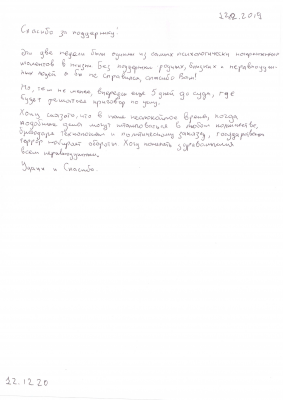 12.12.2019
Спасибо за поддержку!
Эти две недели были одними из самых психологически напряженных
моментов в жизни. Без поддержки родных, близких и неравнодуш-
ных людей я бы не справился, спасибо Вам!
Но, тем не менее, впереди еще 5 дней до суда, где
будет решаться приговор по делу.
Хочу сказать, что в наше неспокойное время, когда
подобные дела могут штамповаться в любом количестве,
благодаря беззаконию и политическому заказу, государственный
террор набирает обороты. Хочу пожелать здравомыслия
всем неравнодушным.
Удачи и Спасибо.
12.12.20